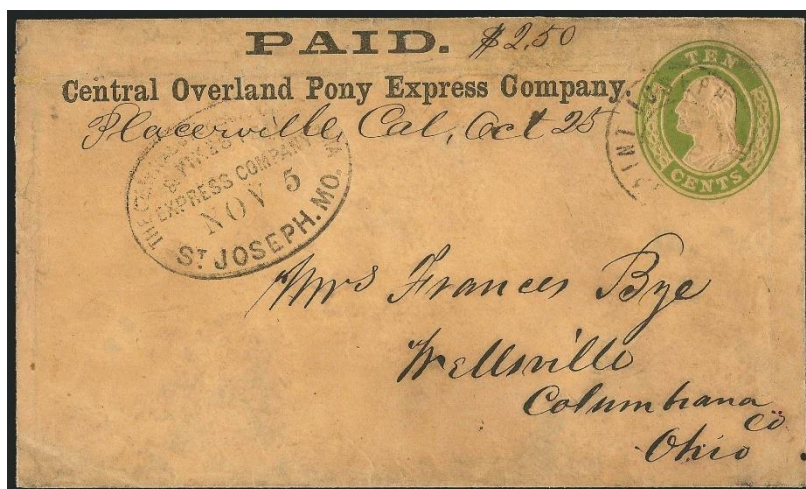 PAID. $2,50
Central Overland Pony Express Company.
Placerville, Cal, Oct 25
TEN
CENTS
SAINT JOSEPH
THE CENTRAL
& PIKES PEAK
EXPRESS COMPANY
NOV 5
ST JOSEPH. MO.
Mrs Frances Bye
Wellsville
Columbiana
Co
Ohio